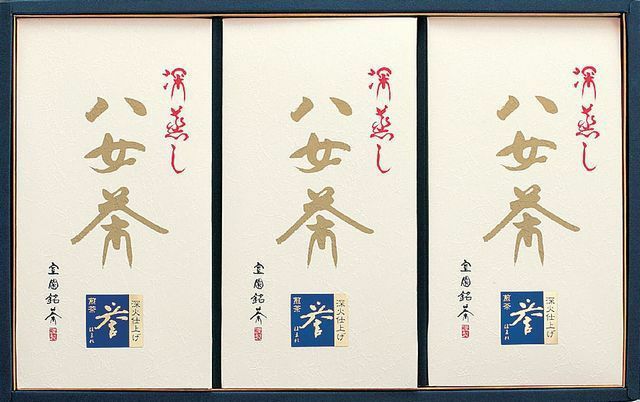 深蒸し
八女茶
室園銘茶
煎茶
誉
ほまれ
深火仕上げ
深蒸し
八女茶
室園銘茶
煎茶
誉
ほまれ
深火仕上げ
深蒸し
八女茶
室園銘茶
煎茶
誉
ほまれ
深火仕上げ